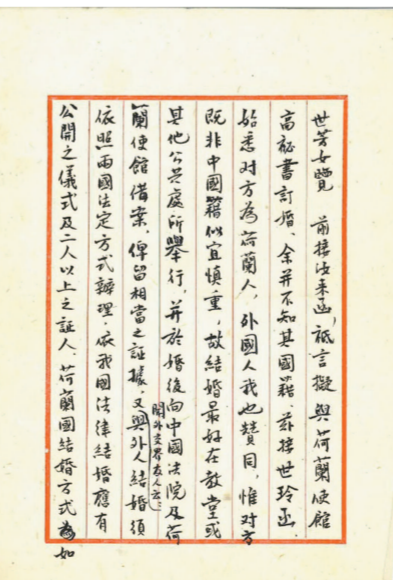 世芳女覽　前接汝來函,祗言擬與荷蘭使館
高秘書訂婚、余并不知其國籍、茲接世玲函
始悉對方為荷蘭人,外國人我也贊同,惟對方
既非中國籍似宜慎重,故結婚最好在教堂或
其他公共處所舉行,并於婚後向中國法院及荷
蘭使館備案,俾留相當之証據,又與外人結婚須
聞外交界友人云:
依照兩國法定方式辦理,依我國法律結婚應有
公開之儀式及二人以上之証人、荷蘭國結婚方式為如